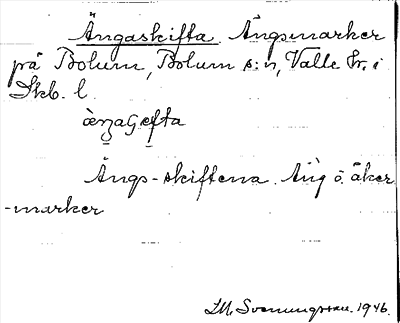 Ängaskifta. Ängsmarker
på Bolum, Bolum s:n, Valle hr. i
Skb. l.
Ängs-skiftena. Äng o. åker
-marker
1946.